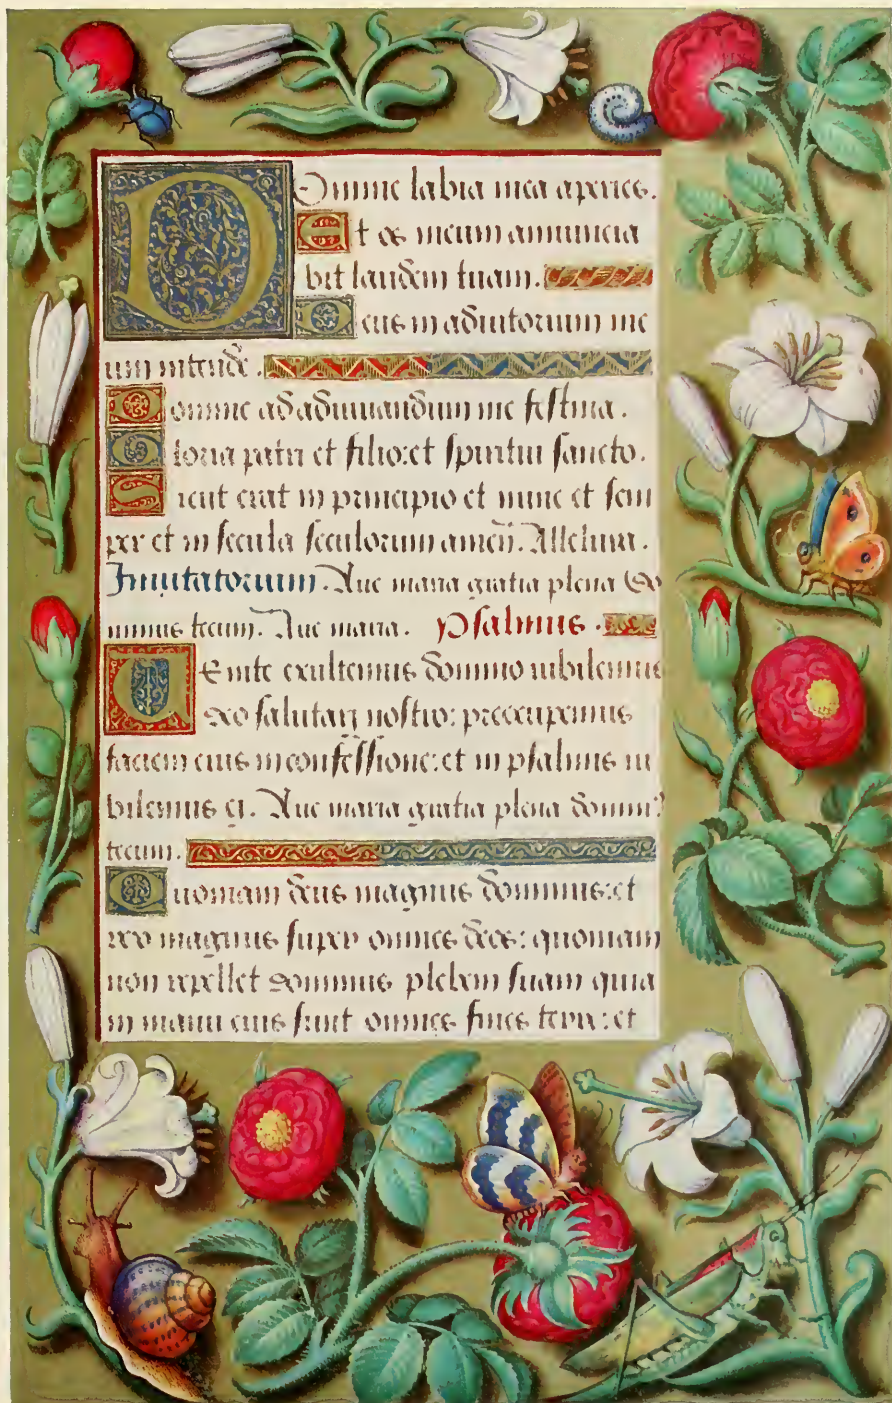 Domine labia mea aperies.
Et os meum annuncia
bit laudem tuam.
Deus in adiutorium me
um intende.
Domine ad adiuuandum me festina.
Gloria patri et filio: et spiritui sancto.
Sicut erat in principio et nunc et sem
per et in secula seculorum amen. Alleluia.
Inuitatorium. Aue maria gratia plena Do
minus tecum. Aue maria. Psalmus.
Uenite exultemus domino iubilemus
deo salutari nostro: preocupemus
faciem eius in confessione: et in psalmis iu
bilemus ei. Aue maria gratia plena domin9
tecum.
Quoniam deus magnus dominus: et
rex magnus super omnes deos: quoniam
non repellet dominus plebem suam quia
in manu eius sunt omnes fines terre: et